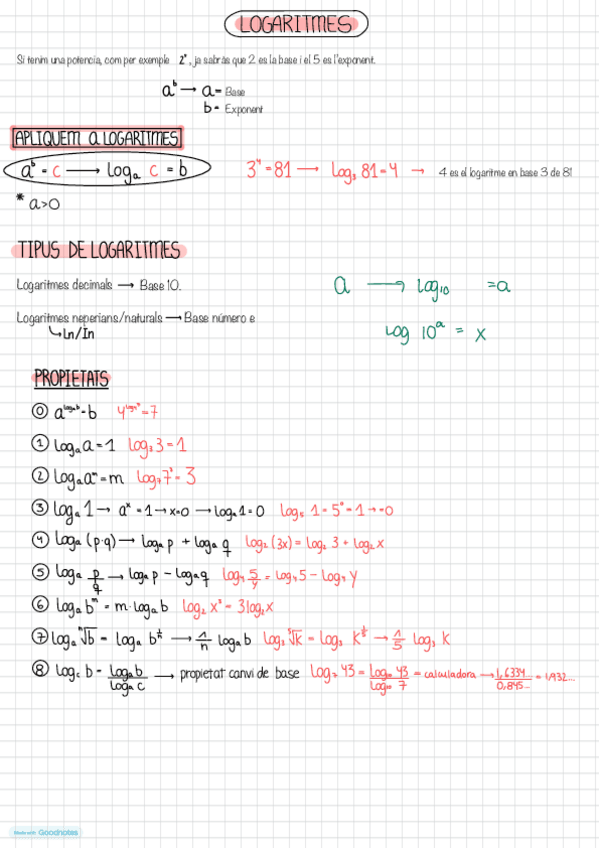 LOGARITMES
Si tenim una potencia, com per exemple 2⁵, ja sabràs que 2 es la base i el 5 es l'exponent.
aᵇ → a = Base
b = Exponent
APLIQUEM A LOGARITMES
aᵇ = c → logₐ c = b 3⁴ = 81 → log₃ 81 = 4 → 4 es el logaritme en base 3 de 81
* a>0
TIPUS DE LOGARITMES
Logaritmes decimals → Base 10. a → log₁₀ = a
Logaritmes neperians/naturals → Base número e
↳ Ln/In log 10ᵃ = x
PROPIETATS
⓪ a^(logₐ b) = b 4^(log₄ 7) = 7
① logₐ a = 1 log₃ 3 = 1
② logₐ aᵐ = m log₇ 7³ = 3
③ logₐ 1 → aˣ = 1 → x=0 → logₐ 1 = 0 log₅ 1 = 5⁰ = 1 → =0
④ logₐ (p·q) → logₐ p + logₐ q log₂ (3x) = log₂ 3 + log₂ x
⑤ logₐ p/q → logₐ p − logₐ q log₄ 5/y = log₄ 5 − log₄ y
⑥ logₐ bᵐ = m·logₐ b log₂ x³ = 3log₂ x
⑦ logₐ ⁿ√b = logₐ b^(1/n) → 1/n logₐ b log₃ ⁵√k = log₃ k^(1/5) → 1/5 log₃ k
⑧ log꜀ b = logₐ b / logₐ c → propietat canvi de base log₇ 43 = log₁₀ 43 / log₁₀ 7 = calculadora → 1,6334... / 0,845... = 1,932...
Made with Goodnotes